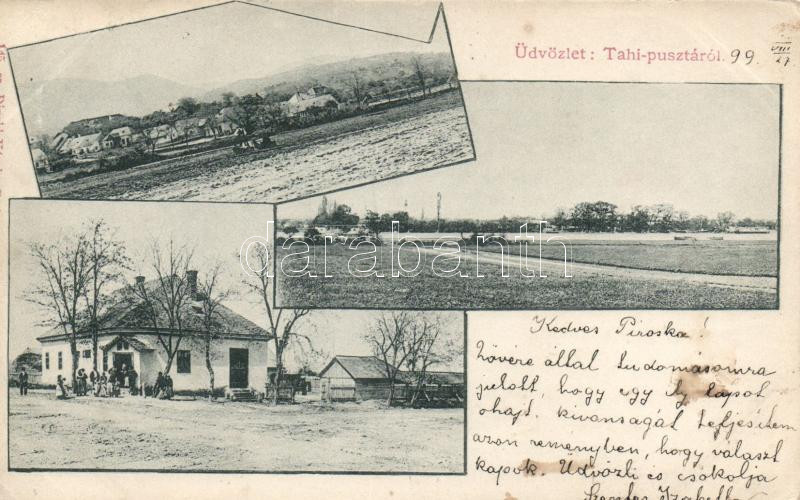 Üdvözlet: Tahi-pusztáról. 99 VIII/27
darabanth
Kedves Piroska!
Nővére által tudomásomra
jutott, hogy egy ily lapot
ohajt. kivánságát teljesitem
azon reményben, hogy választ
kapok. Üdvözli és csókolja
Izabella